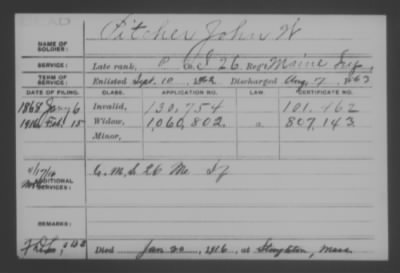 DEAD
NAME OF SOLDIER: Pitcher, John W
SERVICE: Late rank, P Co. , 26 Reg't Maine Inf.
TERM OF SERVICE: Enlisted Sept. 10 1862 Discharged Aug. 7, 1863
DATE OF FILING. CLASS. APPLICATION NO. LAW. CERTIFICATE NO.
1868 Jany 6 Invalid, 130,754 101,462
1916 Feb. 15 Widow, 1,060,802. 807,143
Minor,
ADDITIONAL SERVICES: 26 Me. If
REMARKS:
Died Jan 20, 1916, at Stoughton, Mass.